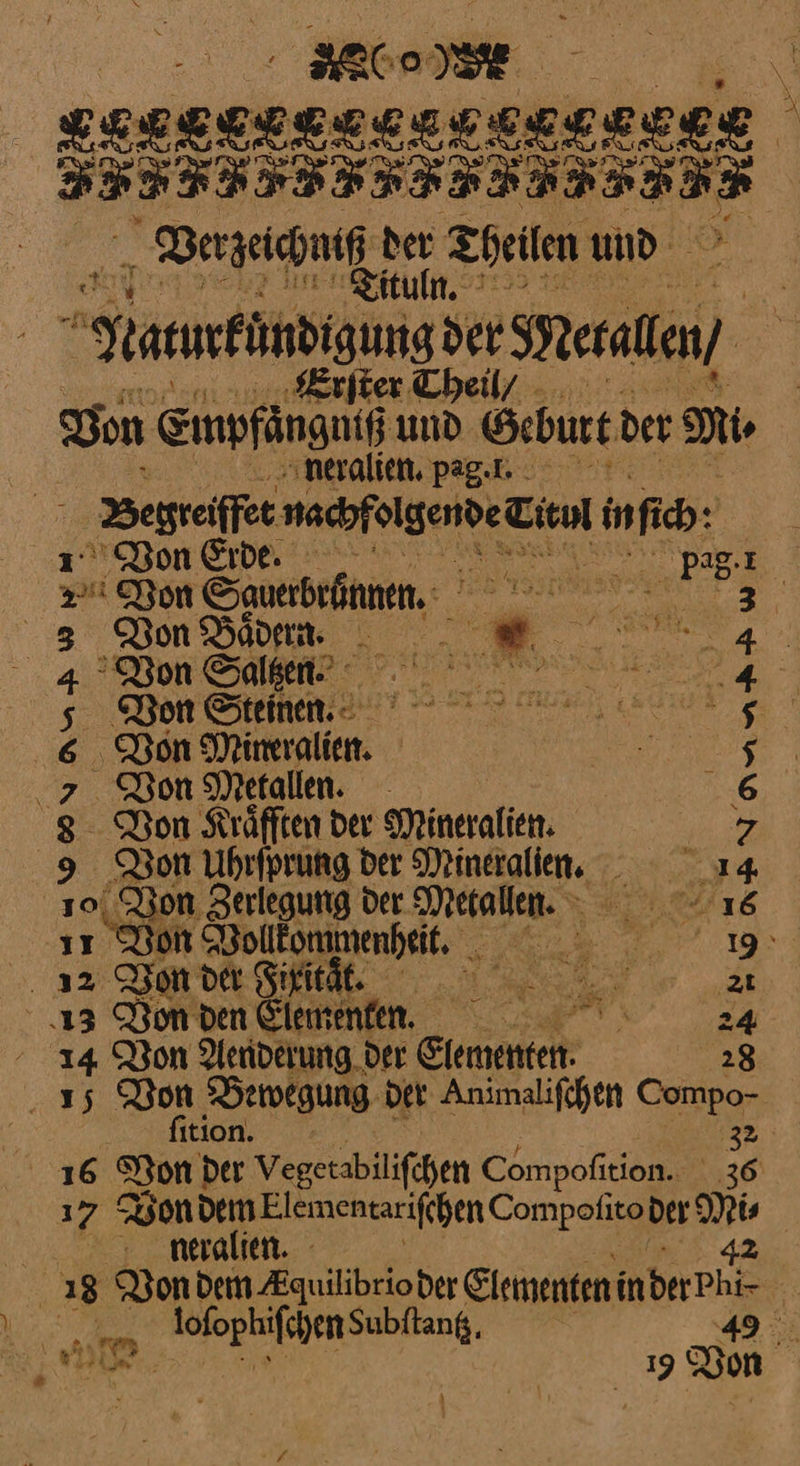 Verzeichniß der Theilen und
Tituln.
Naturkůndigung der Metallen/
Erſter Theil/
Von Empfaͤngniß und Geburt der Mi-
neralien. pag.1.
Begreiffet nachfolgende Titul in ſich:
1 Von Erde. pag.1
2 Von Sauerbrůnnen. 3
3 Von Baͤdern. 4
4 Von Saltzen. 4
5 Von Steinen. 5
6 Von Mineralien. 5
7 Von Metallen. 6
8 Von Kraͤfften der Mineralien. 7
9 Von Uhrſprung der Mineralien. 14
10 Von Zerlegung der Metallen. 16
11 Von Vollkommenheit. 19
12 Von der Fixitaͤt. 21
13 Von den Elementen. 24
14 Von Aenderung der Elementen. 28
15 Von Bewegung der Animaliſchen Compo-
ſition. 32
16 Von der Vegetabiliſchen Compoſition. 36
17 Von dem Elementariſchen Compoſito der Mi-
neralien. 42
18 Von dem Æquilibrio der Elementen in der Phi-
loſophiſchen Subſtantz. 49
19 Von